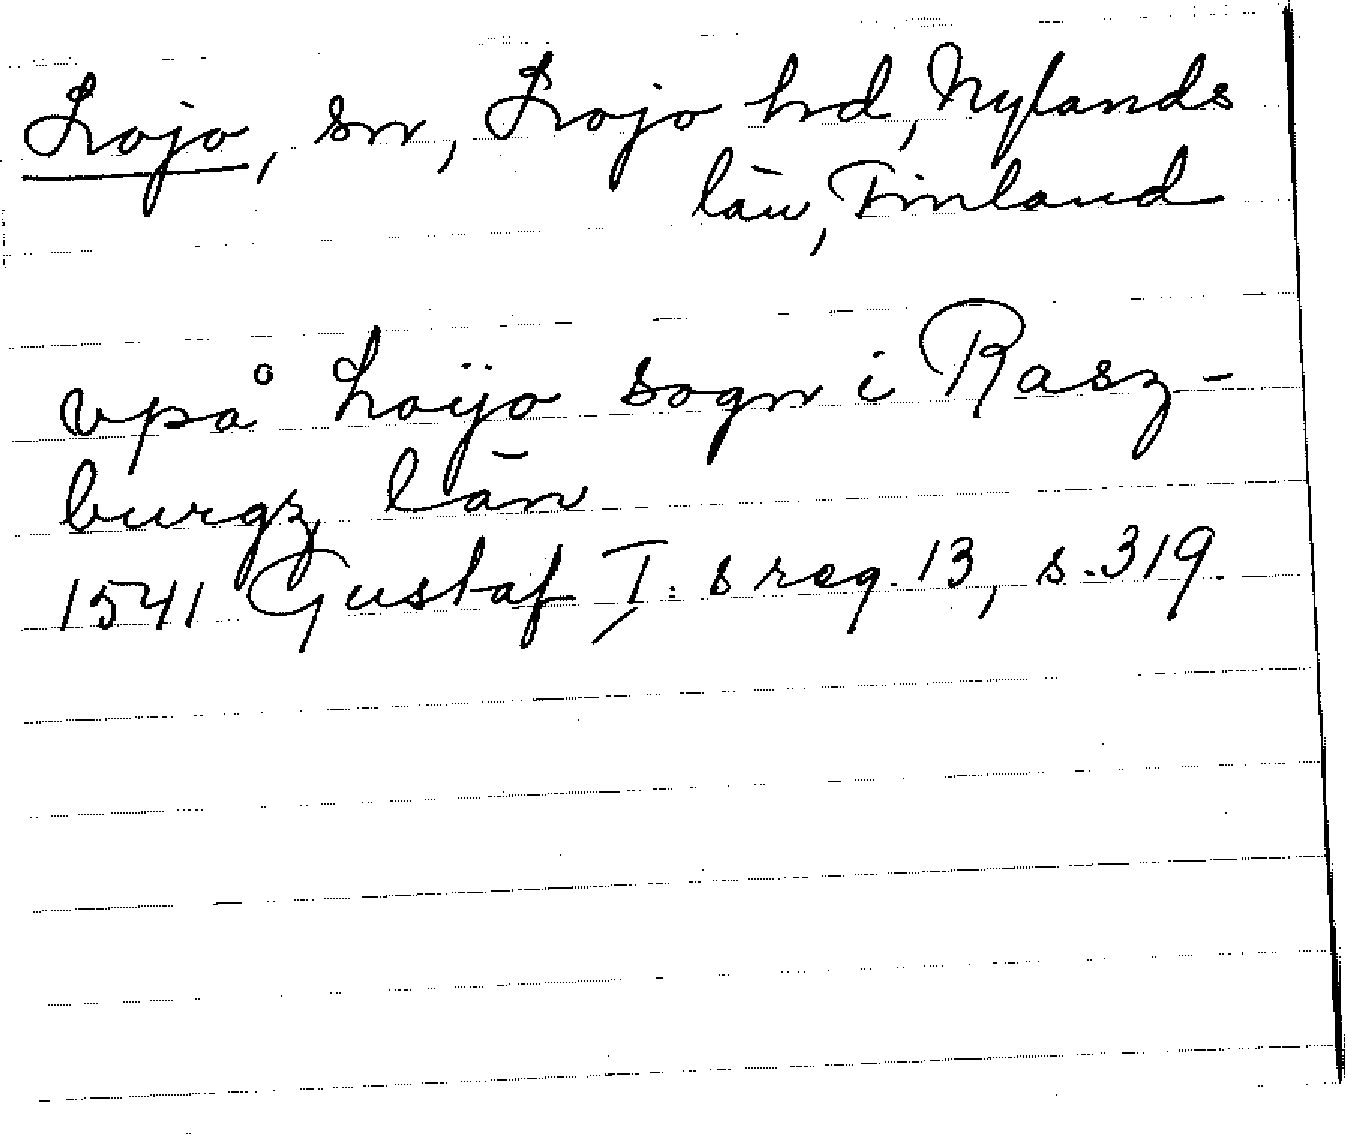 Lojo, sn, Lojo hd, Nylands
län, Finland
vpå Loÿo sogn i Rasz-
burgz län
1541 Gustaf I:s reg. 13, s. 319.